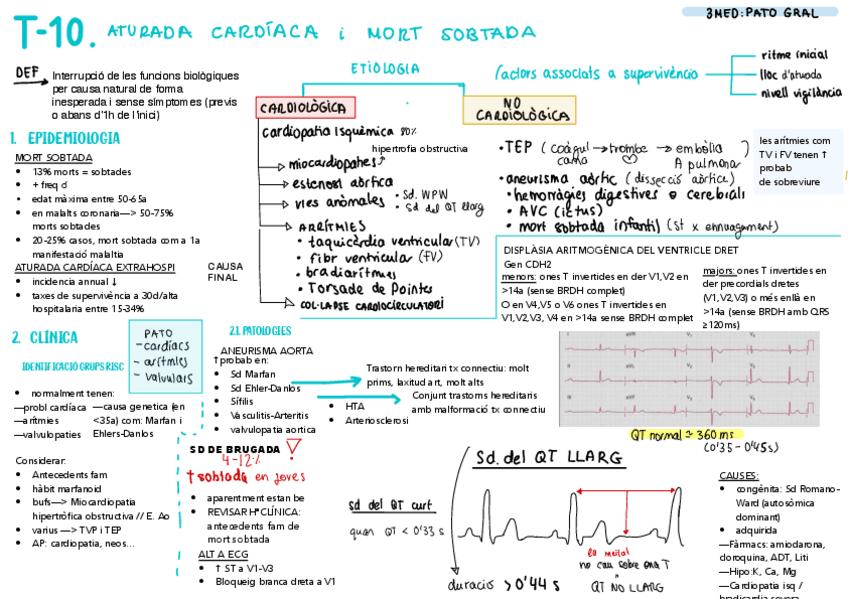 3MED: PATO GRAL
T-10. ATURADA CARDÍACA i MORT SOBTADA
DEF
Interrupció de les funcions biològiques
per causa natural de forma
inesperada i sense símptomes (previs
o abans d'1h de l'inici)
1. EPIDEMIOLOGIA
MORT SOBTADA
• 13% morts = sobtades
• + freq ♂
• edat màxima entre 50-65a
• en malalts coronaria—> 50-75%
morts sobtades
• 20-25% casos, mort sobtada com a 1a
manifestació malaltia
ATURADA CARDÍACA EXTRAHOSPI
• incidencia annual ↓
• taxes de supervivència a 30d/alta
hospitalaria entre 15-34%
ETIOLOGIA
CARDIOLÒGICA
cardiopatia isquèmica 80%
hipertrofia obstructiva
miocardiopaties
estenosi aòrtica
vies anòmales
• Sd. WPW
• Sd del QT llarg
ARRÍTMIES
• taquicàrdia ventricular (TV)
• fibr ventricular (FV)
• bradiarítmies
• Torsade de Pointes
COL·LAPSE CARDIOCIRCULATORI
CAUSA
FINAL
NO
CARDIOLÒGICA
• TEP (coàgul → trombe → embòlia)
cama
A pulmonar
• aneurisma aòrtic (dissecció aòrtica)
• hemorràgies digestives o cerebrals
• AVC (ictus)
• mort sobtada infantil (st x ennuagament)
factors associats a supervivència
ritme inicial
lloc d'aturada
nivell vigilància
les arítmies com
TV i FV tenen ↑
probab
de sobreviure
DISPLÀSIA ARITMOGÈNICA DEL VENTRICLE DRET
Gen CDH2
menors: ones T invertides en der V1,V2 en
>14a (sense BRDH complet)
O en V4,V5 o V6 ones T invertides en
V1,V2,V3, V4 en >14a sense BRDH complet
majors: ones T invertides en
der precordials dretes
(V1,V2,V3) o més enllà en
>14a (sense BRDH amb QRS
≥120ms)
2. CLÍNICA
IDENTIFICACIÓ GRUPS RISC
PATO
- cardíacs
- arítmies
- valvulars
• normalment tenen:
—probl cardíaca
—arítmies
—valvulopaties
—causa genetica (en
<35a) com: Marfan i
Ehlers-Danlos
Considerar:
• Antecedents fam
• hàbit marfanoid
• bufs—> Miocardiopatia
hipertròfica obstructiva // E. Ao
• varius —> TVP i TEP
• AP: cardiopatia, neos...
2.1. PATOLOGIES
ANEURISMA AORTA
↑probab en:
• Sd Marfan
• Sd Ehler-Danlos
• Sífilis
• Vasculitis-Arteritis
• valvulopatia aortica
• HTA
• Arteriosclerosi
Trastorn hereditari tx connectiu: molt
prims, laxitud art, molt alts
Conjunt trastorns hereditaris
amb malformació tx connectiu
SD DE BRUGADA
4-12%
↑sobtada en joves
• aparentment estan be
• REVISAR HªCLÍNICA:
antecedents fam de
mort sobtada
ALT A ECG
• ↑ ST a V1-V3
• Bloqueig branca dreta a V1
QT normal ≈ 360 ms
(0'35 - 0'45s)
Sd. del QT LLARG
sd del QT curt
quan QT < 0'33 s
la meitat
no cau sobre ona T
QT NO LLARG
duració > 0'44 s
CAUSES:
• congènita: Sd Romano-
Ward (autosòmica
dominant)
• adquirida
—Fàrmacs: amiodarona,
cloroquina, ADT, Liti
—Hipo:K, Ca, Mg
—Cardiopatia isq /